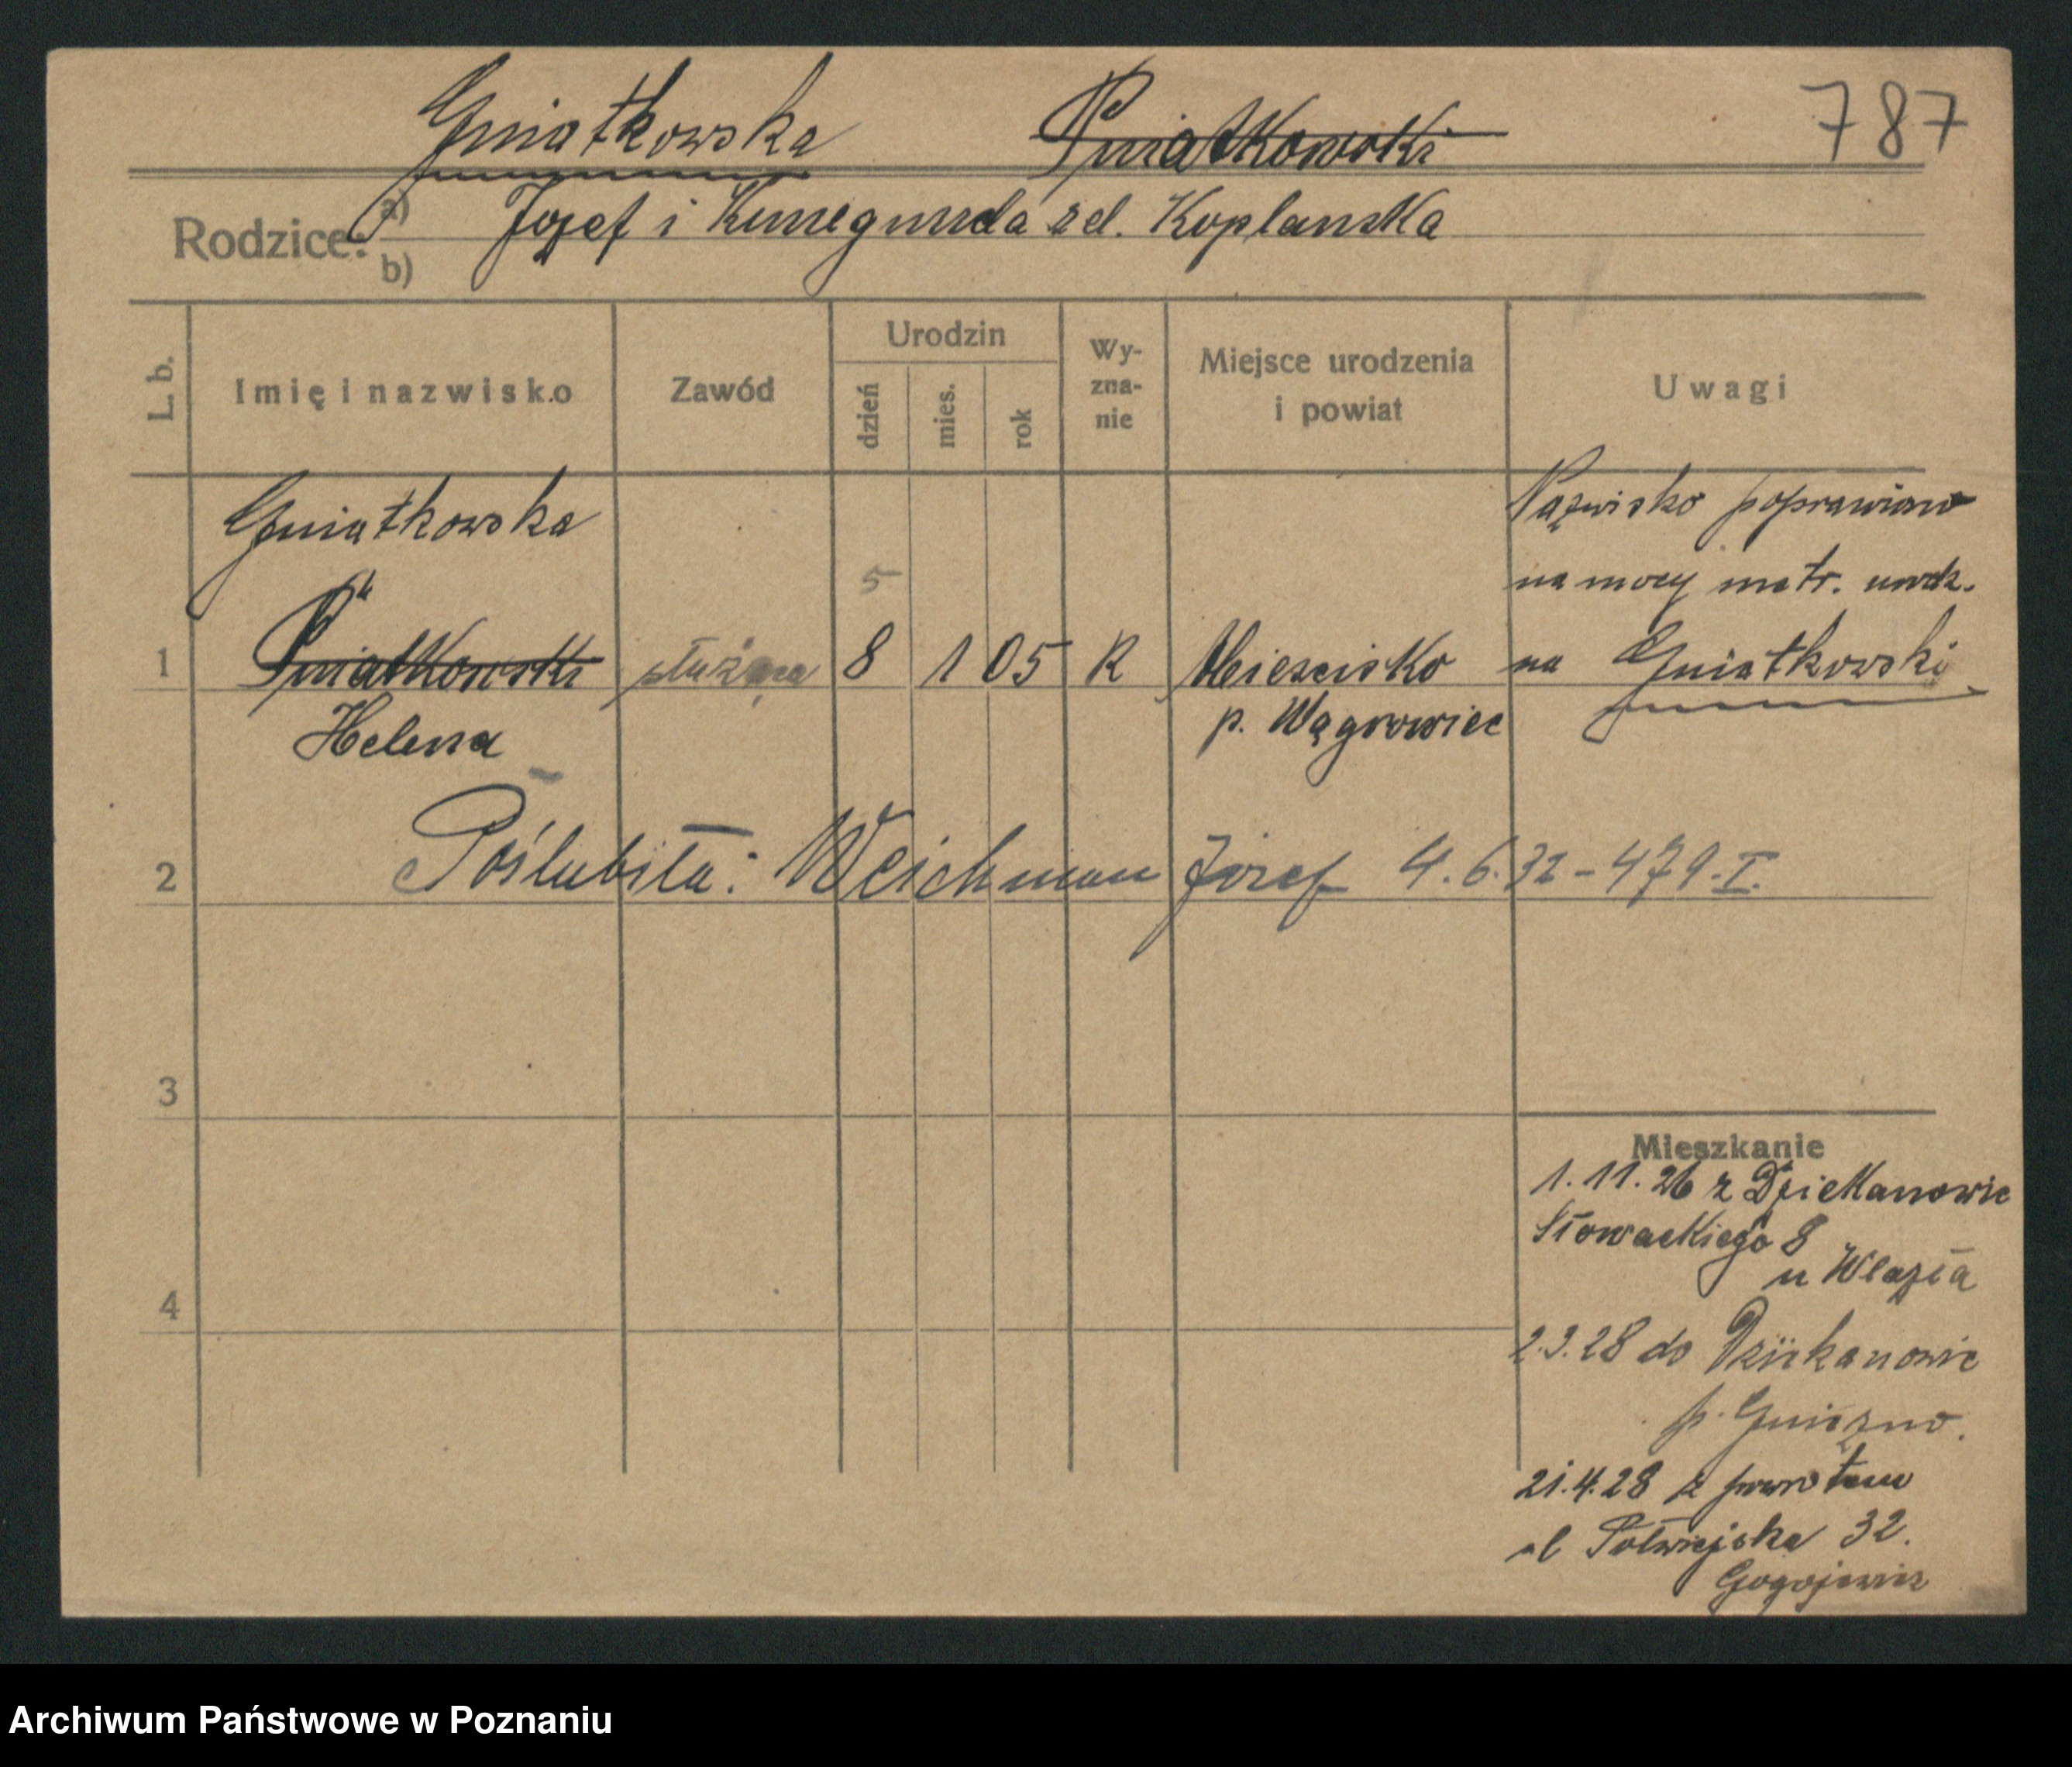 Gniatkowska Pniatkowski 787
Rodzice: a) Józef i Kunegunda zd. Koplanska
b)
L. b. Imię i nazwisko Zawód Urodzin dzień mies. rok Wy-zna-nie Miejsce urodzenia i powiat Uwagi
Gniatkowska Nazwisko poprawiono
5 na mocy metr. urodz.
1 Pniatkowski służąca 8 1 05 R Mieścisko na Gniatkowski
Helena p. Wągrowiec
2 Poślubiła: Weichman Józef 4.6.32 - 479.I.
3
Mieszkanie
1.11.26 z Dziekanowic
Słowackiego 8
u Wlazła
4
2.3.28 do Dziekanowic
p. Gniezno.
21.4.28 z powrotem
ul Półwiejska 32.
Gogojewicz
Archiwum Państwowe w Poznaniu